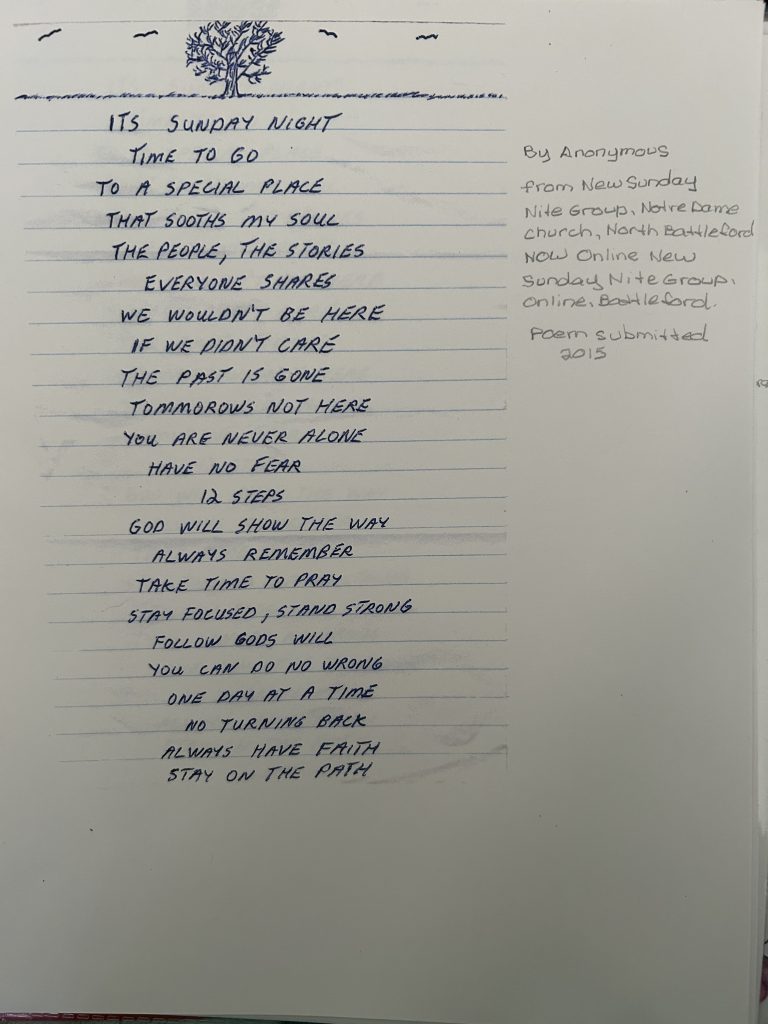 ITS SUNDAY NIGHT
TIME TO GO
TO A SPECIAL PLACE
THAT SOOTHS MY SOUL
THE PEOPLE, THE STORIES
EVERYONE SHARES
WE WOULDN'T BE HERE
IF WE DIDN'T CARE
THE PAST IS GONE
TOMMOROWS NOT HERE
YOU ARE NEVER ALONE
HAVE NO FEAR
12 STEPS
GOD WILL SHOW THE WAY
ALWAYS REMEMBER
TAKE TIME TO PRAY
STAY FOCUSED, STAND STRONG
FOLLOW GODS WILL
YOU CAN DO NO WRONG
ONE DAY AT A TIME
NO TURNING BACK
ALWAYS HAVE FAITH
STAY ON THE PATH
By Anonymous
from New Sunday
Nite Group, Notre Dame
church, North Battleford
NOW Online New
Sunday Nite Group,
online, Battleford.
Poem submitted
2015